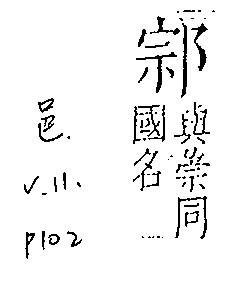 𨛱
與崇同
國名
邑.
V.11.
P102